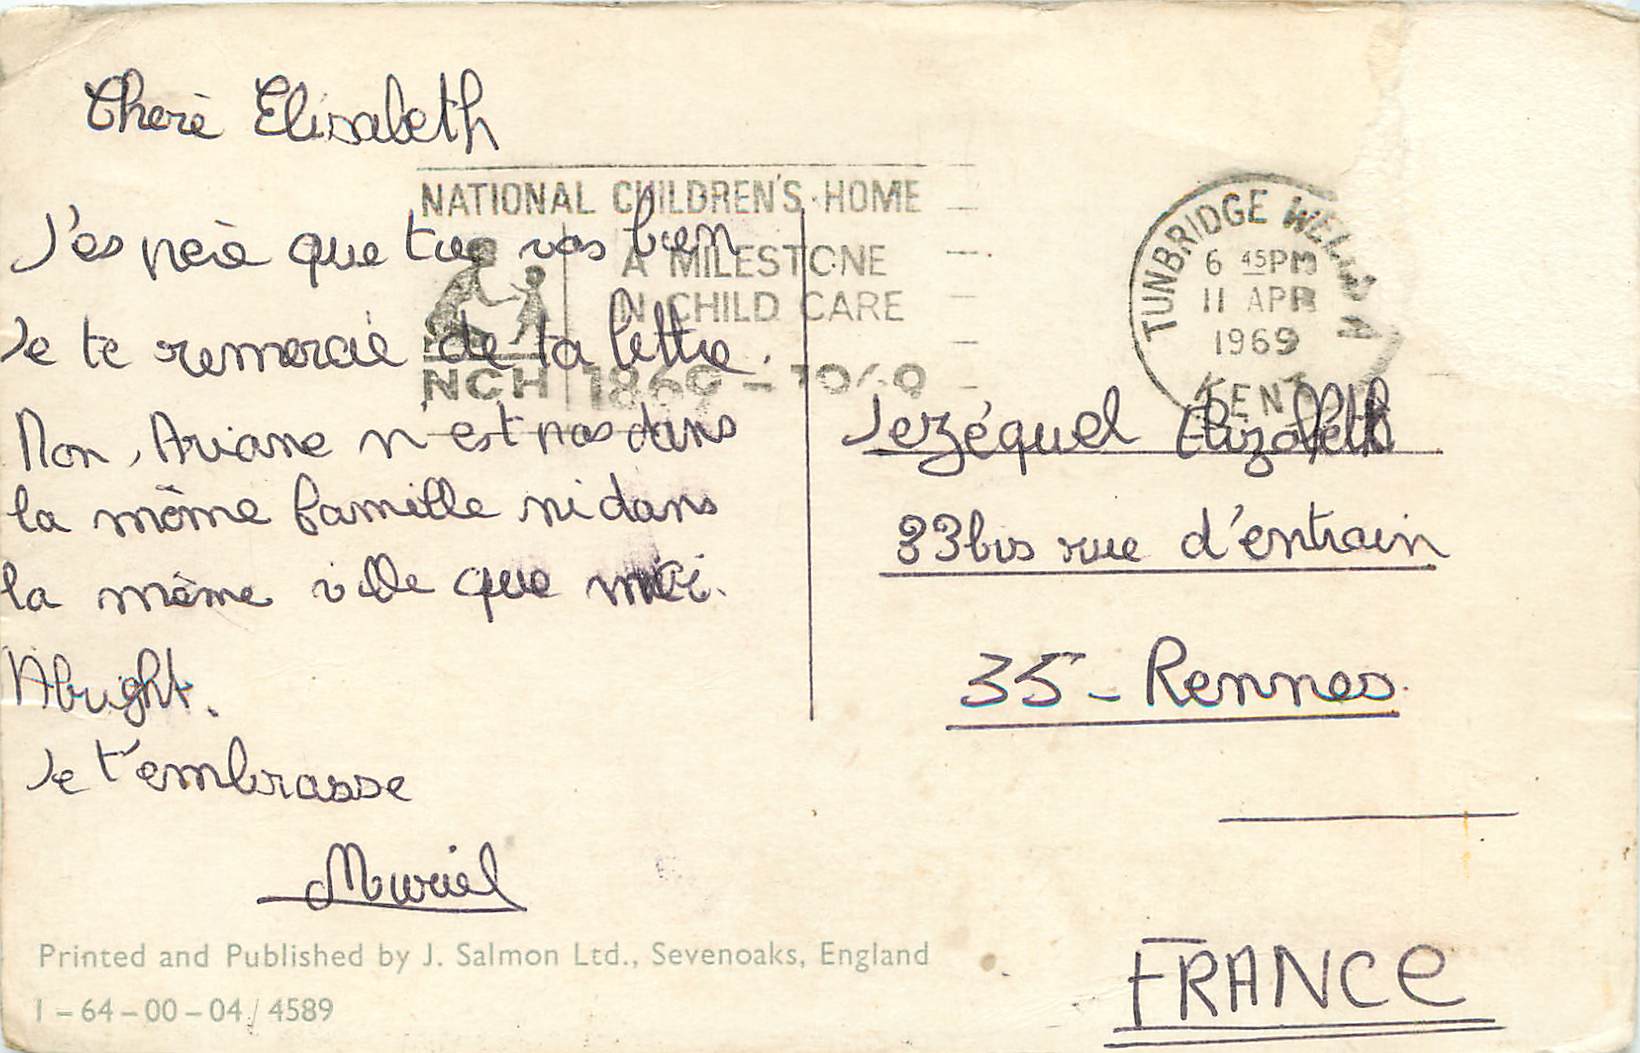 Cherè Elisabeth
NATIONAL CHILDREN'S HOME
J'espère que tu vas bien
A MILESTONE
IN CHILD CARE
Je te remercie de ta lettre.
NCH 1869 - 1969
Non, Ariane n'est pas dans
la même famille ni dans
la même ville que moi.
Alright.
Je t'embrasse
Muriel
TUNBRIDGE WELLS A
6 45PM
11 APR
1969
KENT
Jezéquel Elizabeth
33bis rue d'entrain
35 - Rennes.
FRANCE
Printed and Published by J. Salmon Ltd., Sevenoaks, England
1-64-00-04/4589